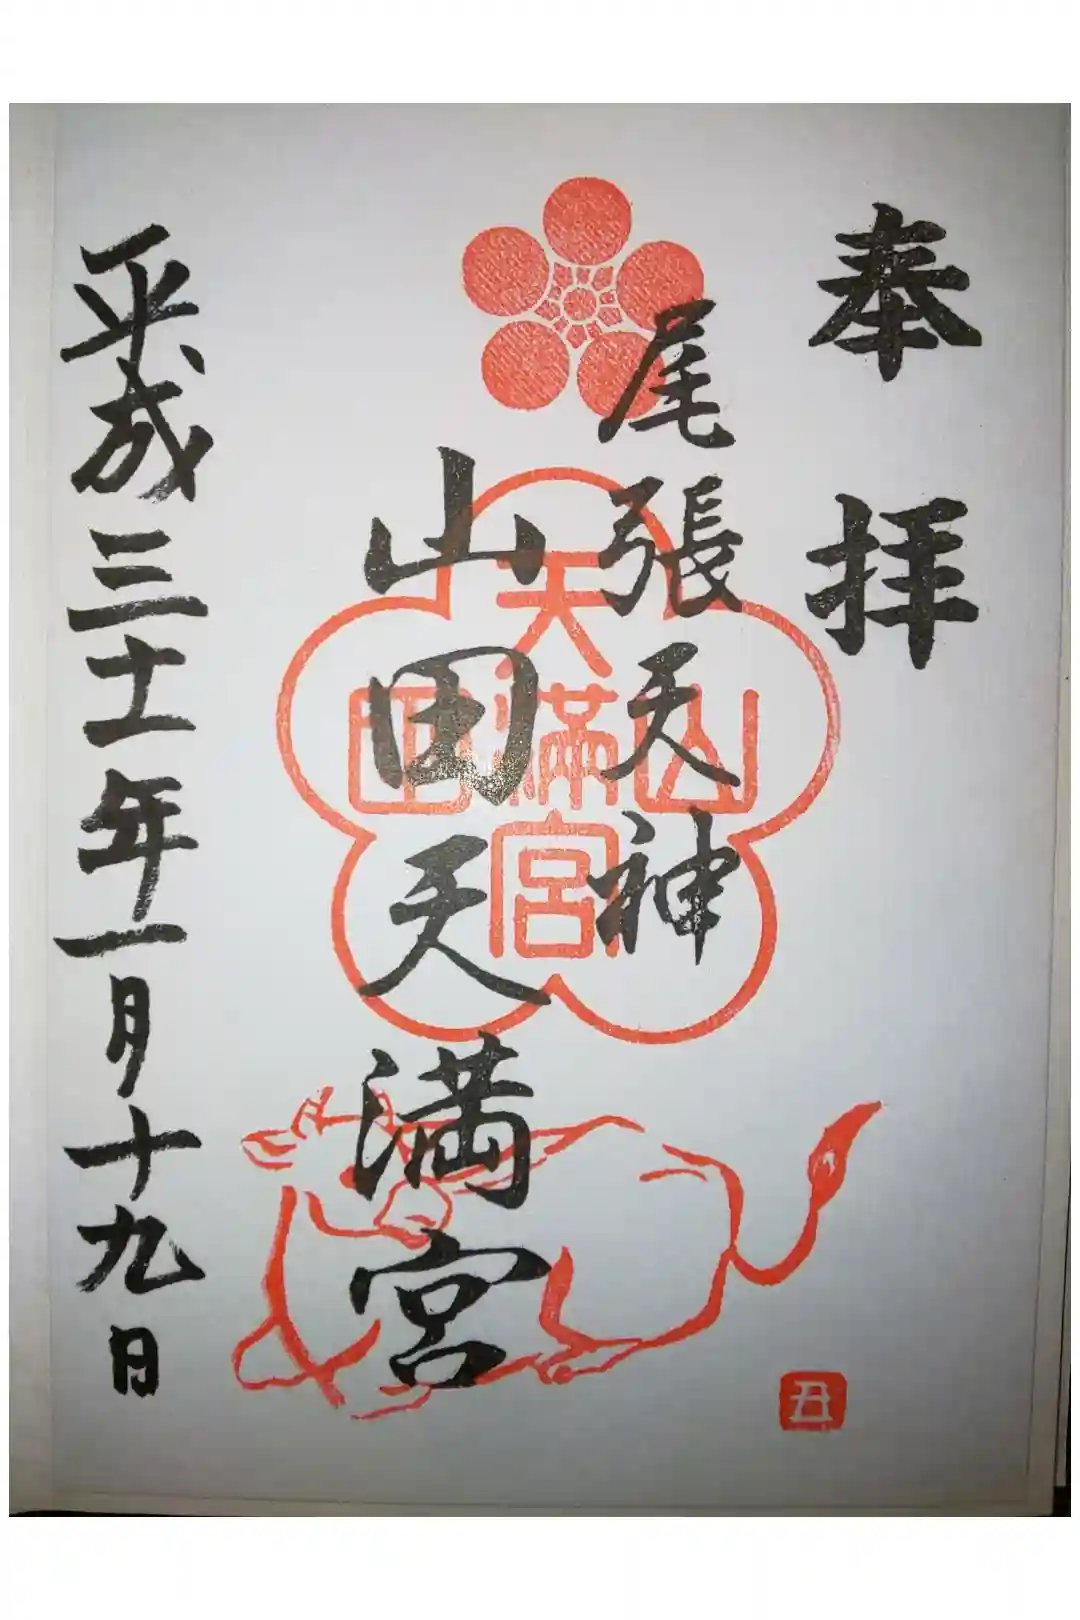 奉拝
尾張天神
山田天満宮
平成三十一年一月十九日
山田天満宮
丑